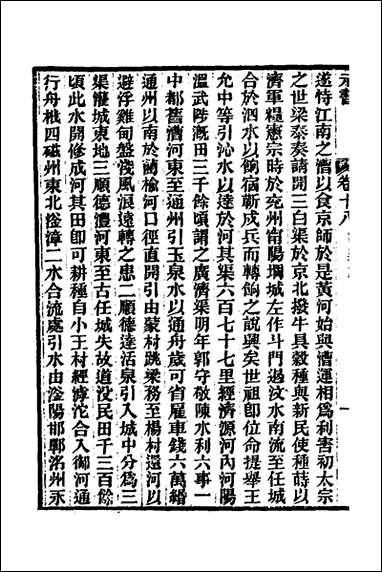 元書 卷十八 一
遂恃江南之漕以食京師於是黃河始與漕運相爲利害初太宗
之世梁泰奏請開三白渠於京北撥牛具穀種與新民使種蒔以
濟軍糧憲宗時於兗州甯陽堽城左作斗門遏汶水南流至任城
合於泗水以餉宿蘄戍兵而轉餉之說興矣世祖卽位命提舉王
允中等引沁水以達於河其渠六百七十七里經濟源河內河陽
溫武陟漑田三千餘頃謂之廣濟渠明年郭守敬陳水利六事一
中都舊漕河東至通州引玉泉水以通舟歲可省雇車錢六萬緡
通州以南於藺榆河口徑直開引由蒙村跳梁務至楊村還河以
避浮雞甸盤淺風浪遠轉之患二順德達活泉引入城中分爲三
渠灌城東地三順德澧河東至古任城失故道没民田千三百餘
頃此水開修成河其田卽可耕種自小王村經滹沱合入御河通
行舟栰四磁州東北滏漳二水合流處引水由滏陽邯鄲洺州永